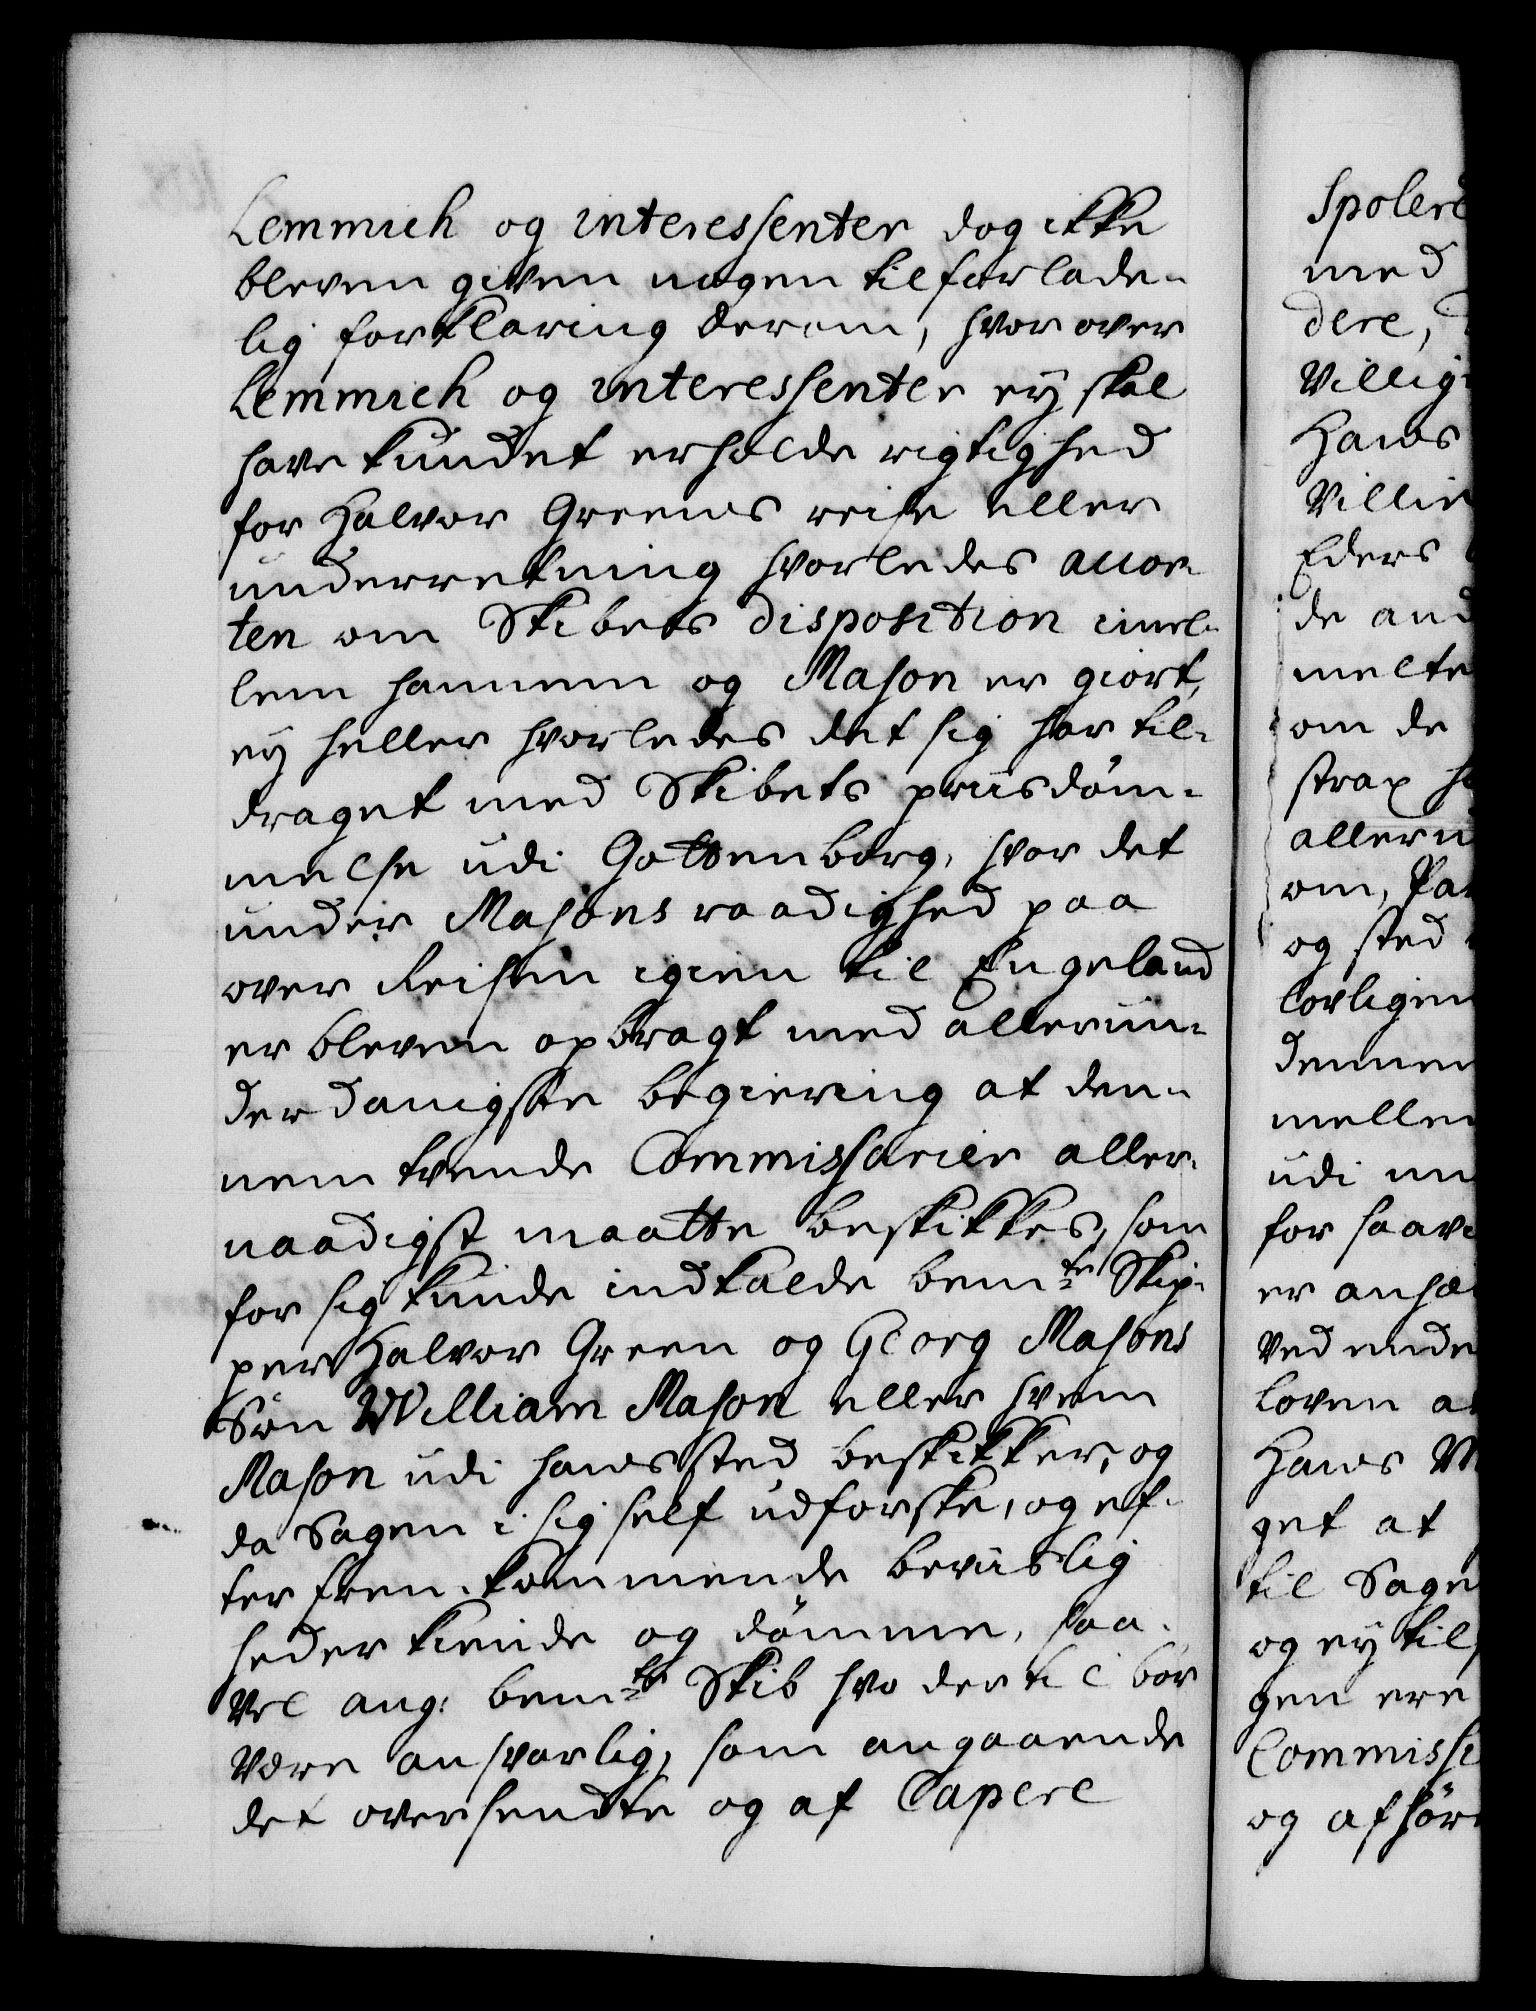 Lemmich og interessenter dog ikke
bleven given nogen tilforlade-
lig forklaring derom, hvor over
Lemmich og interessenter ey skal
have kundet erholde rigtighed
for Halvor Greens reise eller
underretning hvorledes accor-
ten om Skibets disposition imel-
lem hannem og Mason er giort,
ey heller hvorledes det sig har til-
draget med Skibets priisdöm-
melse udi Gottenborg, hvor det
under Masons raadighed paa
over Reisen igien til Engeland
er bleven opbragt med allerun-
derdanigste begiering at den-
nem tvende Commissarier aller-
naadigst maatte beskikkes, som
for sig kunde indkalde bemte Skip-
per Halvor Green og Georg Masons
Sön William Mason eller hvem
Mason udi hans sted beskikker, og
da Sagen i sig self udforske, og ef-
ter frem-kommende beviislig
heder kiende og dömme, saa-
vel ang: bemte Skib hvo dertil bör
være ansvarlig, som angaaende
det oversendte og af Capere
Spolere
med
dere,
Villig
Hans
Villie
Eders
de and
melte
om de
strax
alleru
om, Pa
og sted
lovligen
dennem
mellem
udi
for saavi
er anhæ
ved ende
loven a
Hans M
get at
til Sage
og ey til
gen ere
Commissi
og afhör